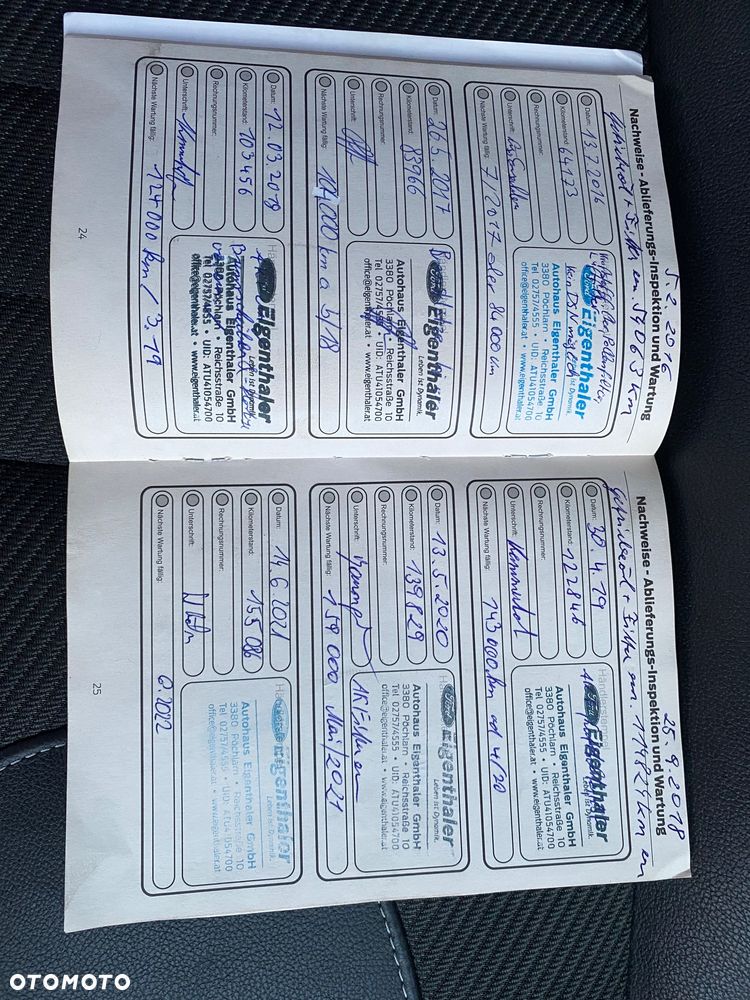 5.2.2016
Nachweise - Ablieferungs-Inspektion und Wartung
Datum: 13.7.2016
Kilometerstand: 64173
Rechnungsnummer:
Unterschrift:
Nächste Wartung fällig: 7/2017 oder 84000 km
Eigenthaler
Leben ist Dynamik.
Autohaus Eigenthaler GmbH
3380 Pöchlarn • Reichsstraße 10
Tel 02757/4555 • UID: ATU41054700
office@eigenthaler.at • www.eigenthaler.at
Datum: 26.5.2017
Kilometerstand: 83966
Rechnungsnummer:
Unterschrift:
Nächste Wartung fällig: 104000 km o 5/18
Eigenthaler
Leben ist Dynamik.
Autohaus Eigenthaler GmbH
3380 Pöchlarn • Reichsstraße 10
Tel 02757/4555 • UID: ATU41054700
office@eigenthaler.at • www.eigenthaler.at
Datum: 12.03.2018
Kilometerstand: 103456
Rechnungsnummer:
Unterschrift:
Nächste Wartung fällig: 124000 km / 3.19
Eigenthaler
Leben ist Dynamik.
Autohaus Eigenthaler GmbH
3380 Pöchlarn • Reichsstraße 10
Tel 02757/4555 • UID: ATU41054700
office@eigenthaler.at • www.eigenthaler.at
24
25.9.2018
Nachweise - Ablieferungs-Inspektion und Wartung
Datum: 30.4.19
Kilometerstand: 122846
Rechnungsnummer:
Unterschrift:
Nächste Wartung fällig: 143000 km od 4/20
Eigenthaler
Leben ist Dynamik.
Autohaus Eigenthaler GmbH
3380 Pöchlarn • Reichsstraße 10
Tel 02757/4555 • UID: ATU41054700
office@eigenthaler.at • www.eigenthaler.at
Datum: 13.5.2020
Kilometerstand: 139829
Rechnungsnummer:
Unterschrift:
Nächste Wartung fällig: 159000 Mai/2021
Eigenthaler
Leben ist Dynamik.
Autohaus Eigenthaler GmbH
3380 Pöchlarn • Reichsstraße 10
Tel 02757/4555 • UID: ATU41054700
office@eigenthaler.at • www.eigenthaler.at
Datum: 14.6.2021
Kilometerstand: 155086
Rechnungsnummer:
Unterschrift:
Nächste Wartung fällig: 6.2022
Eigenthaler
Leben ist Dynamik.
Autohaus Eigenthaler GmbH
3380 Pöchlarn • Reichsstraße 10
Tel 02757/4555 • UID: ATU41054700
office@eigenthaler.at • www.eigenthaler.at
25
OTOMOTO